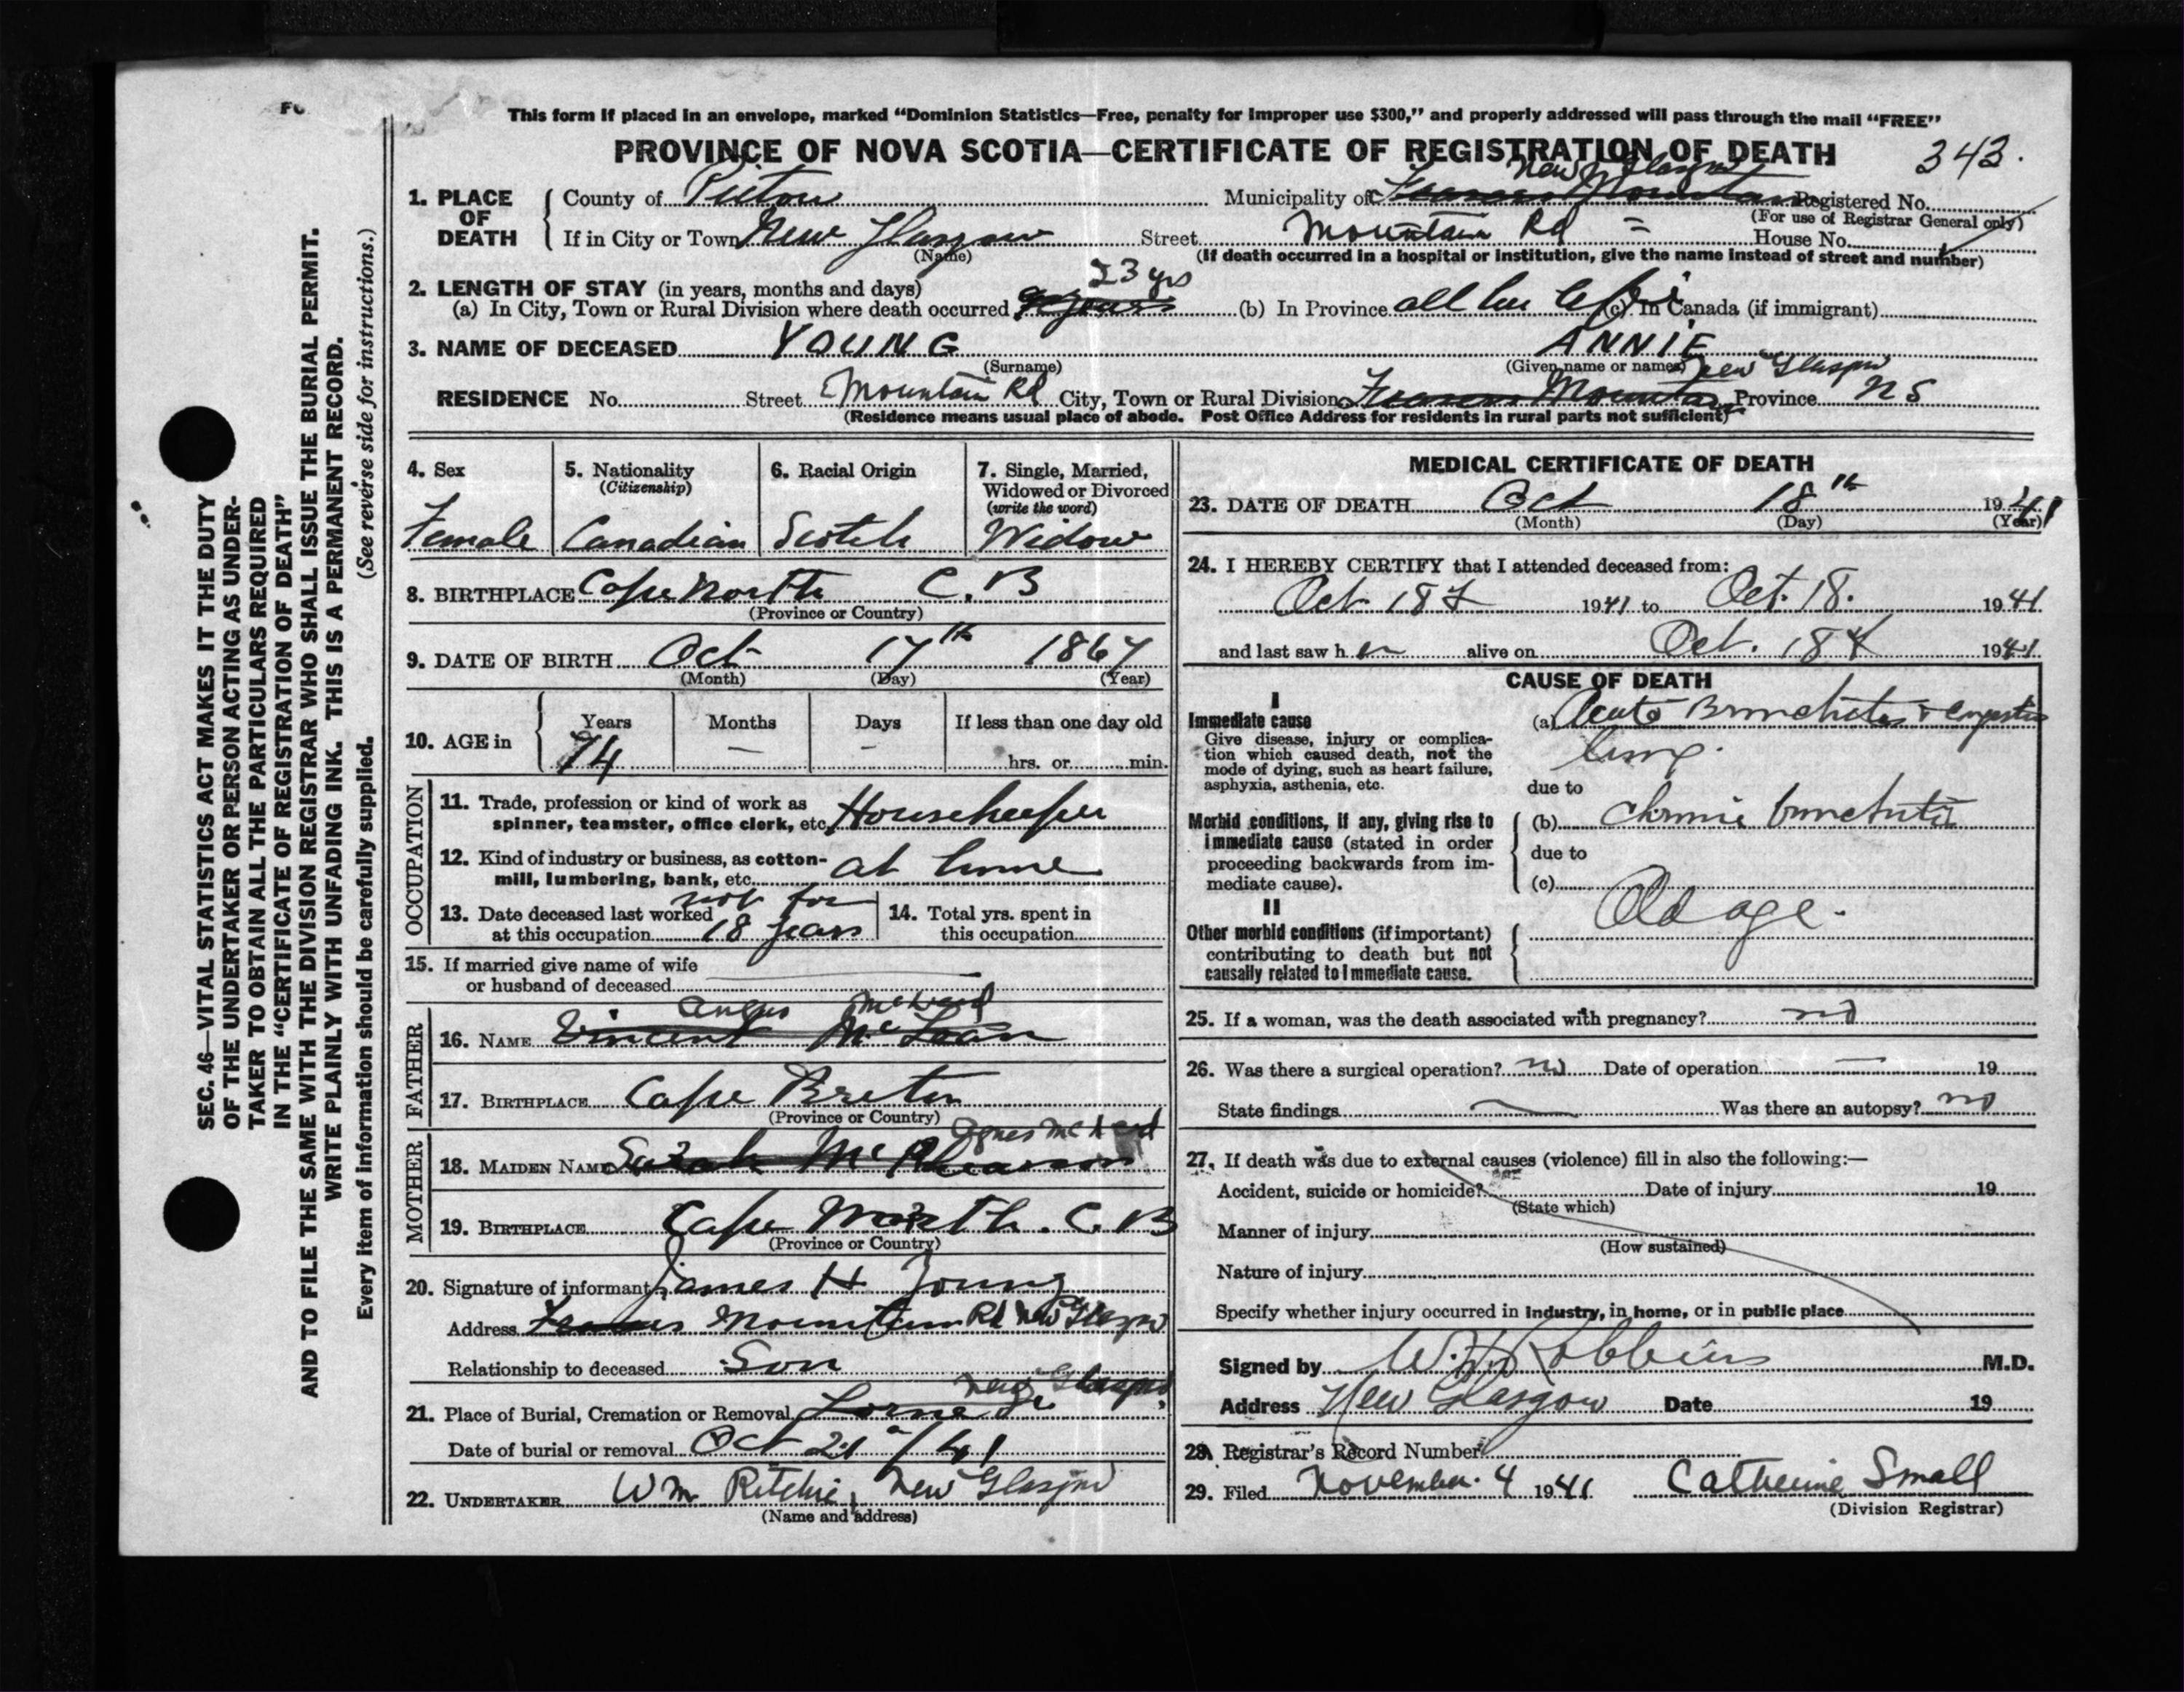 This form if placed in an envelope, marked "Dominion Statistics—Free, penalty for improper use $300," and properly addressed will pass through the mail "FREE"
PROVINCE OF NOVA SCOTIA—CERTIFICATE OF REGISTRATION OF DEATH 343.
SEC. 46—VITAL STATISTICS ACT MAKES IT THE DUTY
OF THE UNDERTAKER OR PERSON ACTING AS UNDER-
TAKER TO OBTAIN ALL THE PARTICULARS REQUIRED
IN THE "CERTIFICATE OF REGISTRATION OF DEATH"
AND TO FILE THE SAME WITH THE DIVISION REGISTRAR WHO SHALL ISSUE THE BURIAL PERMIT.
WRITE PLAINLY WITH UNFADING INK. THIS IS A PERMANENT RECORD.
Every item of information should be carefully supplied. (See reverse side for instructions.)
New Glasgow
1. PLACE OF DEATH County of Pictou Municipality of Mountain Registered No.
(For use of Registrar General only)
If in City or Town New Glasgow Street Mountain Rd House No.
(Name) (If death occurred in a hospital or institution, give the name instead of street and number)
23 yrs
2. LENGTH OF STAY (in years, months and days)
(a) In City, Town or Rural Division where death occurred years (b) In Province all her life (c) In Canada (if immigrant)
3. NAME OF DECEASED YOUNG ANNIE
(Surname) (Given name or names)
New Glasgow
RESIDENCE No. Street Mountain Rd City, Town or Rural Division Mountain Province NS
(Residence means usual place of abode. Post Office Address for residents in rural parts not sufficient)
4. Sex 5. Nationality 6. Racial Origin 7. Single, Married,
(Citizenship) Widowed or Divorced
(write the word)
Female Canadian Scotch Widow
8. BIRTHPLACE Cape North C.B
(Province or Country)
9. DATE OF BIRTH Oct 17th 1867
(Month) (Day) (Year)
10. AGE in Years Months Days If less than one day old
74 — — hrs. or min.
OCCUPATION
11. Trade, profession or kind of work as
spinner, teamster, office clerk, etc. Housekeeper
12. Kind of industry or business, as cotton-
mill, lumbering, bank, etc. at home
13. Date deceased last worked not for
at this occupation 18 years
14. Total yrs. spent in
this occupation
15. If married give name of wife
or husband of deceased
FATHER
Angus
16. NAME Vincent McLean
17. BIRTHPLACE Cape Breton
(Province or Country)
MOTHER
Agnes
18. MAIDEN NAME Sarah
19. BIRTHPLACE Cape North. C.B
(Province or Country)
20. Signature of informant James H Young
Address Mountain Rd New Glasgow
Relationship to deceased Son
New Glasgow
21. Place of Burial, Cremation or Removal Lorne
Date of burial or removal Oct 21 /41
22. UNDERTAKER Wm Ritchie, New Glasgow
(Name and address)
MEDICAL CERTIFICATE OF DEATH
23. DATE OF DEATH Oct 18th 1941
(Month) (Day) (Year)
24. I HEREBY CERTIFY that I attended deceased from:
Oct 18th 1941 to Oct. 18. 1941
and last saw her alive on Oct. 18th 1941
CAUSE OF DEATH
I
Immediate cause (a) Acute Bronchitis & congestion
lung.
Give disease, injury or complica-
tion which caused death, not the
mode of dying, such as heart failure,
asphyxia, asthenia, etc. due to
Morbid conditions, if any, giving rise to
immediate cause (stated in order
proceeding backwards from im-
mediate cause).
(b) Chronic bronchitis
due to
(c)
II Old age.
Other morbid conditions (if important)
contributing to death but not
causally related to immediate cause.
25. If a woman, was the death associated with pregnancy? no
26. Was there a surgical operation? no Date of operation — 19
State findings — Was there an autopsy? no
27. If death was due to external causes (violence) fill in also the following:—
Accident, suicide or homicide? Date of injury 19
(State which)
Manner of injury
(How sustained)
Nature of injury
Specify whether injury occurred in industry, in home, or in public place
Signed by W. H. Robbins M.D.
Address New Glasgow Date 19
28. Registrar's Record Number
29. Filed November 4 1941 Catherine Small
(Division Registrar)